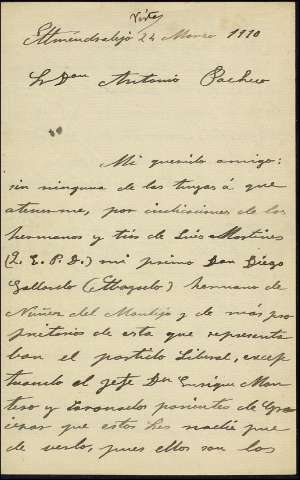 Visto
Almendralejo 24 Marzo 1910
Sr Don Antonio Pacheco
Mi querido amigo:
sin ninguna de las tuyas á que
atenerme, por indicaciones de los
hermanos y tios de Luis Martinez
(Q. E. P. D.) mi primo Don Diego
Gallardo (Abogado) hermano de
Nuñez del Montijo y de más pro
pietarios de esta que representa
ban el partido Liberal, excep
tuando el jefe Don Enrique Mon
tero y parientes de
que estos les nadie pue
de verlo, pues ellos son los